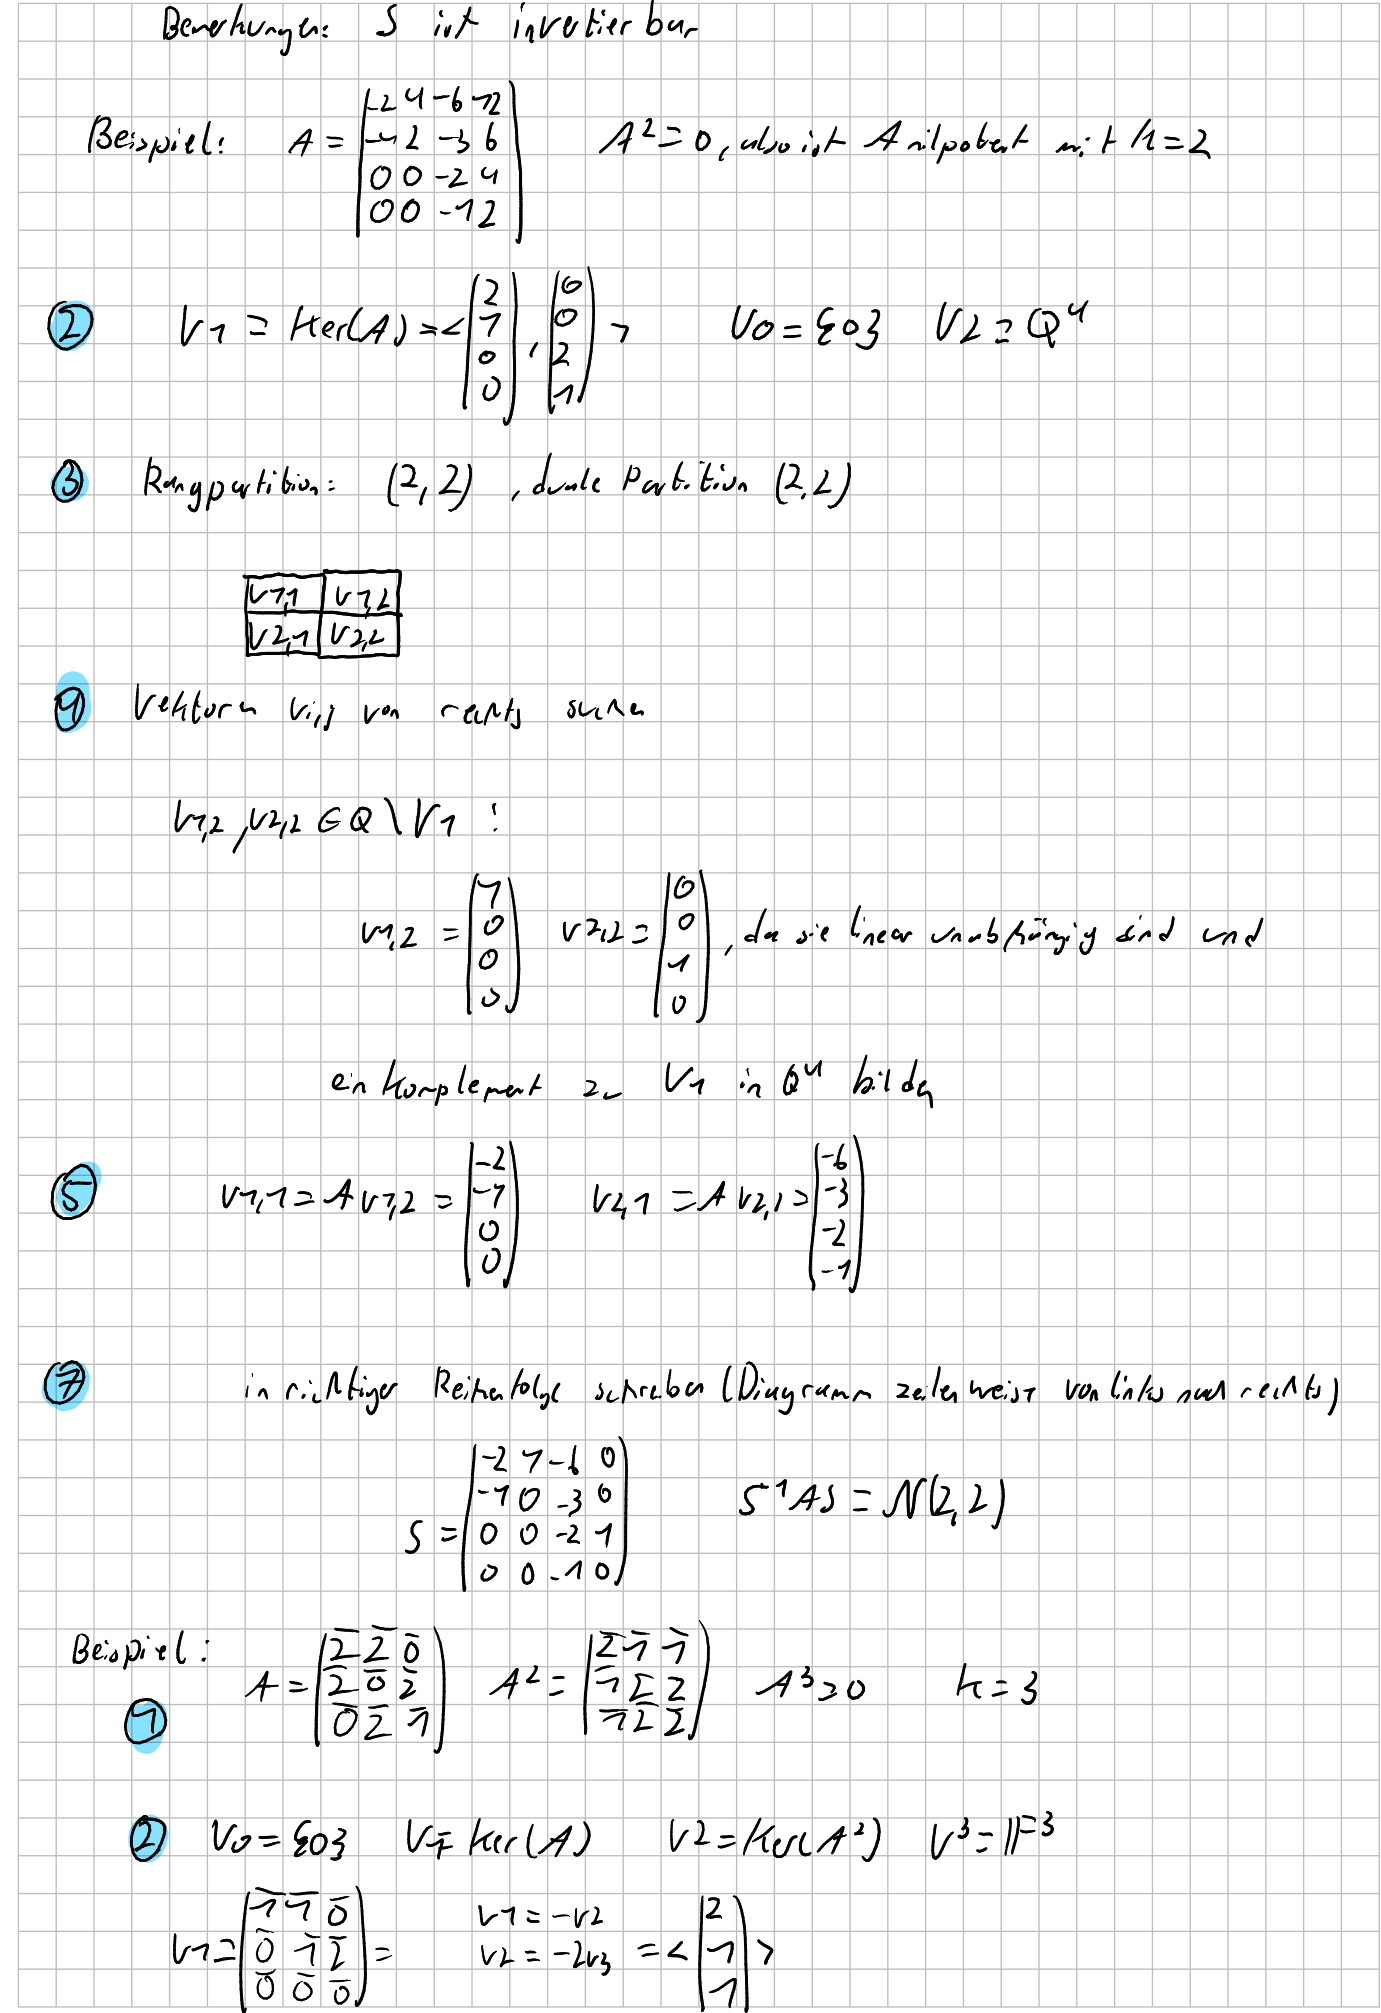 Bemerkungen: S ist invertierbar
Beispiel: A = (-2 4 -6 12
-1 2 -3 6
0 0 -2 4
0 0 -1 2) A² = 0, also ist A nilpotent mit k = 2
② V1 = Ker(A) = < (2 1 0 0), (0 0 2 1) > V0 = {0} V2 = Q⁴
③ Rangpartition: (2,2), duale Partition (2,2)
v1,1 v1,2
v2,1 v2,2
④ Vektoren vi,j von rechts suchen
v1,2, v2,2 ∈ Q \ V1 :
v1,2 = (1 0 0 0) v2,2 = (0 0 1 0), da sie linear unabhängig sind und
ein Komplement zu V1 in Q⁴ bilden
⑤ v1,1 = A v1,2 = (-2 -1 0 0) v2,1 = A v2,2 = (-6 -3 -2 -1)
⑦ in richtiger Reihenfolge schreiben (Diagramm zeilenweise von links nach rechts)
S = (-2 1 -6 0
-1 0 -3 0
0 0 -2 1
0 0 -1 0) S⁻¹AS = N(2,2)
Beispiel:
① A = (2̅ 2̅ 0̅
2̅ 0̅ 2̅
0̅ 2̅ 1̅) A² = (2̅ 1̅ 1̅
1̅ 2̅ 2̅
1̅ 2̅ 2̅) A³ = 0 k = 3
② V0 = {0} V1 = Ker(A) V2 = Ker(A²) V³ = F³
V1 = (1̅ 1̅ 0̅
0̅ 1̅ 2̅
0̅ 0̅ 0̅) = v1 = -v2
v2 = -2v3 = < (2 1 1) >